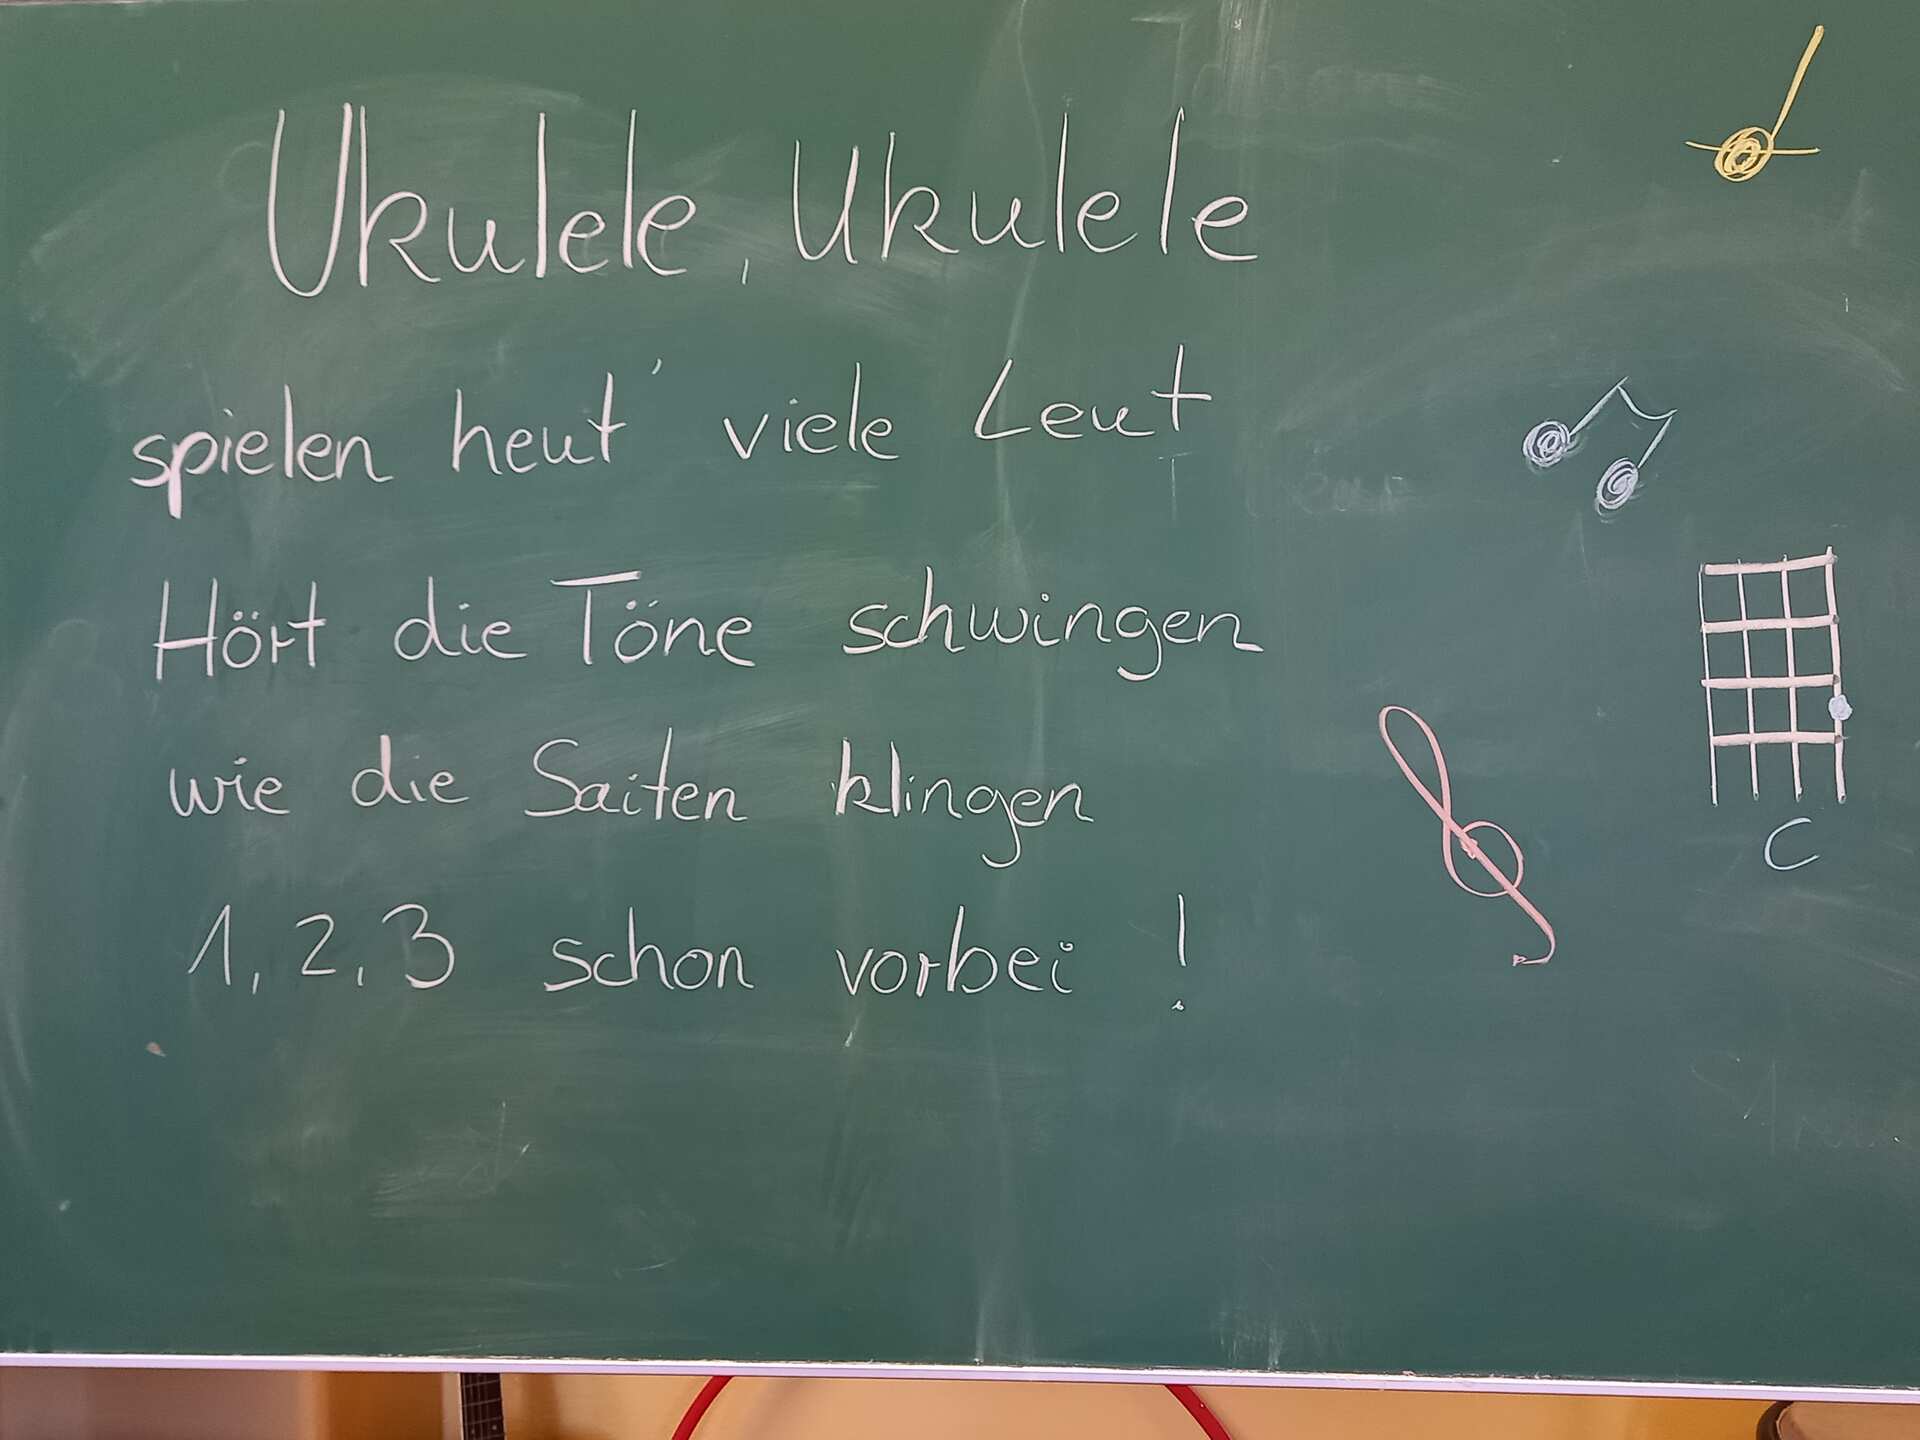 Ukulele, Ukulele
spielen heut' viele Leut
Hört die Töne schwingen
wie die Saiten klingen
1, 2, 3 schon vorbei !
C